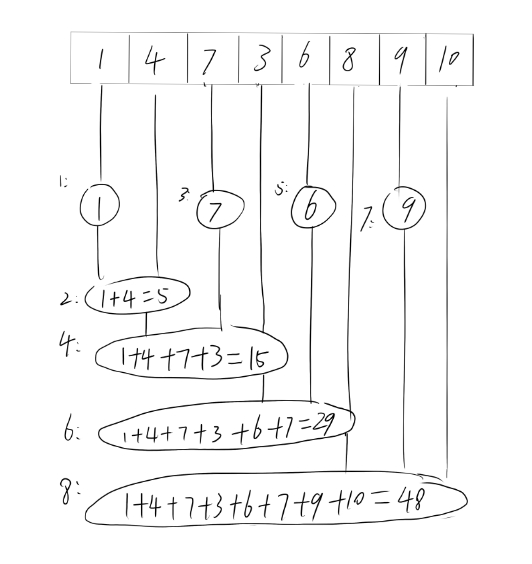 1 4 7 3 6 8 9 10
1: 1 3: 7 5: 6 7: 9
2: 1+4=5
4: 1+4+7+3=15
6: 1+4+7+3+6+7=29
8: 1+4+7+3+6+7+9+10=48